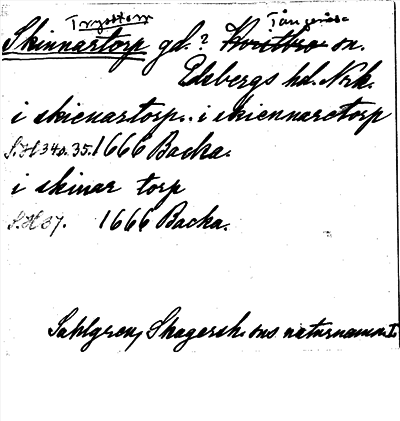 Skinnartorp gd. ? Kvistbro sn.
Edsbergs hd. Nrk.
i skienartorp.. i skiennaretorp
S.H 34a. 35. 1666 Backa.
i skinar torp
S.H 37. 1666 Backa.
Sahlgren, Skagersh. sns naturnamn I.